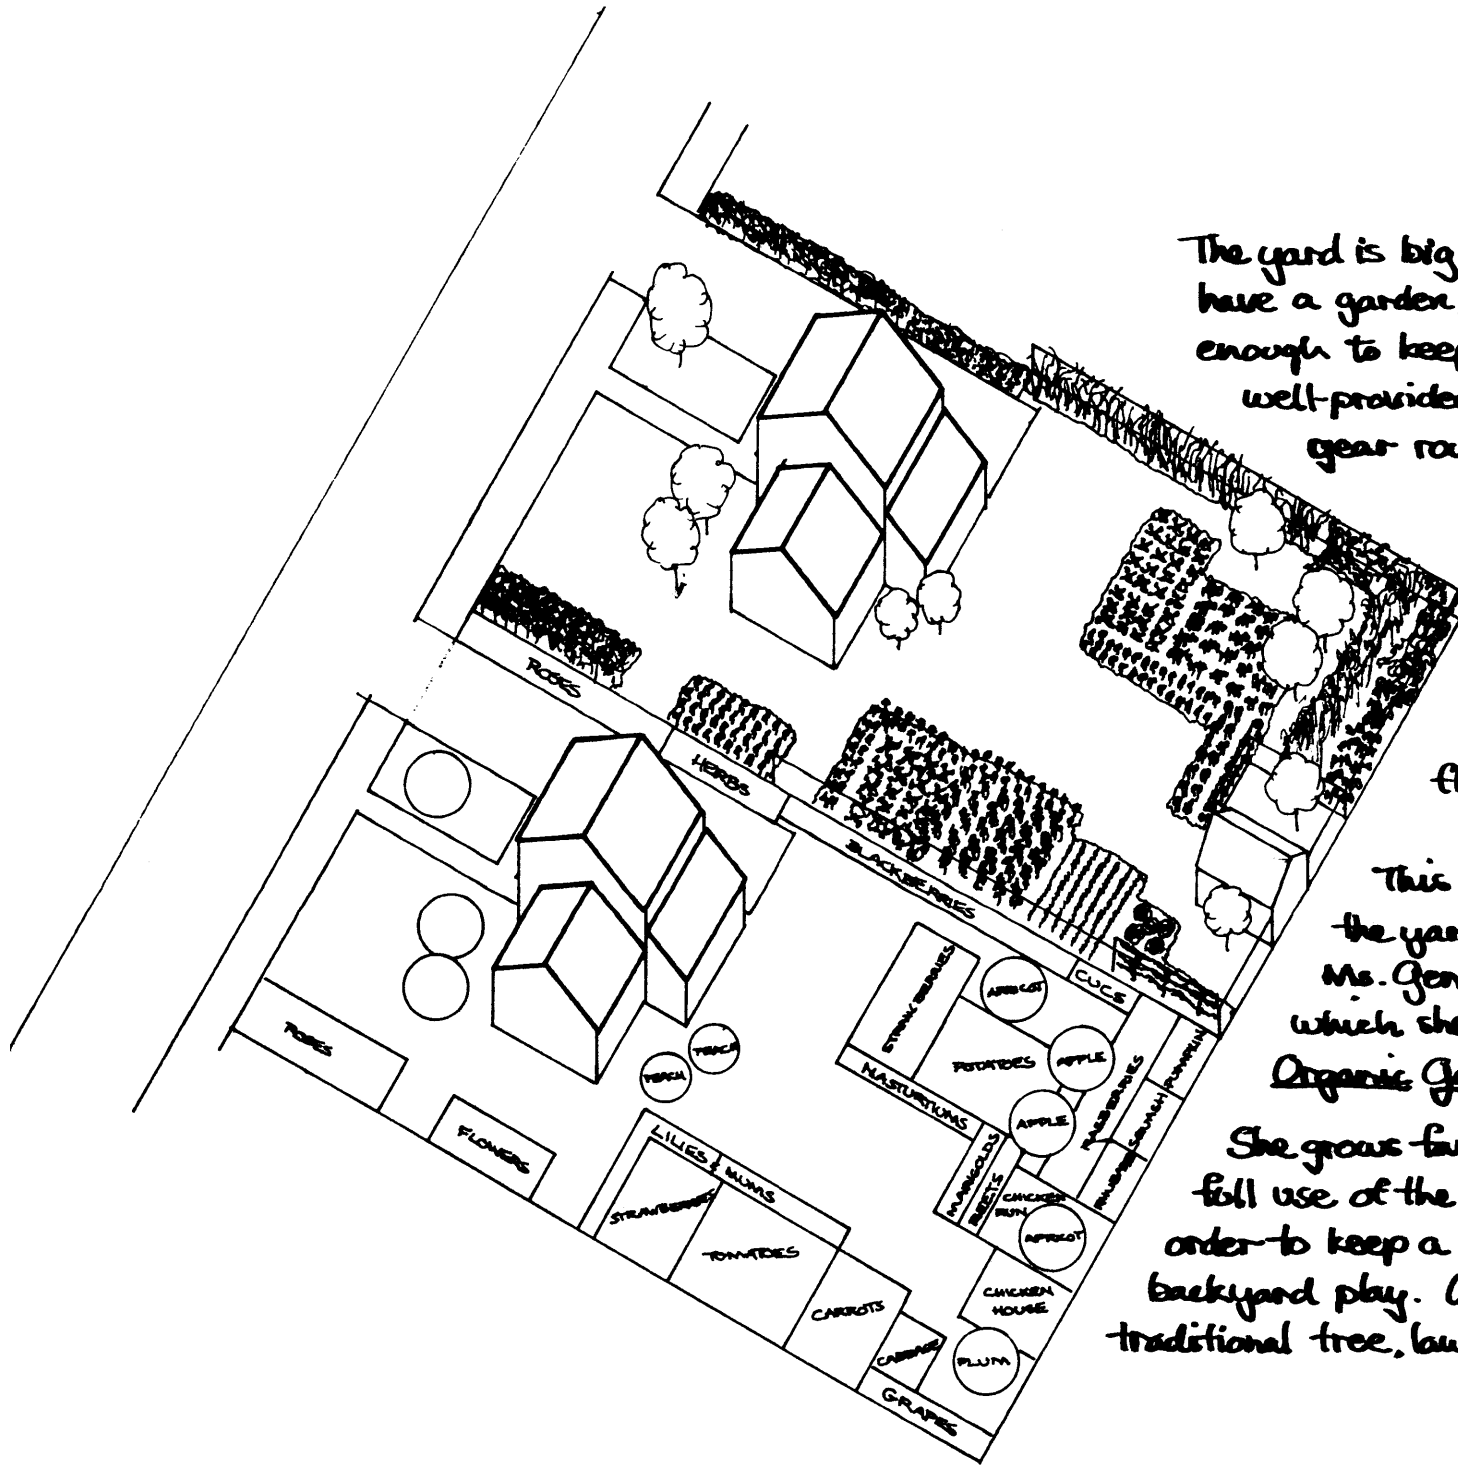 The yard is big
have a garden
enough to keep
well-provide
year ro
fl
This
the yar
Ms. Ger
which she
Organic Ga
She grows fa
full use of the
order to keep a
backyard play.
traditional tree, law
ROSES
HERBS
BLACKBERRIES
CUCS
STRAWBERRIES
APRICOT
POTATOES
APPLE
NASTURTIUMS
APPLE
RASBERRIES
PUMPKIN
SQUASH
RHUBARB
MARIGOLDS
BEETS
CHICKEN
RUN
APRICOT
CHICKEN
HOUSE
PLUM
PEACH
PEACH
ROSES
FLOWERS
LILIES & MUMS
STRAWBERRIES
TOMATOES
CARROTS
CABBAGE
GRAPES